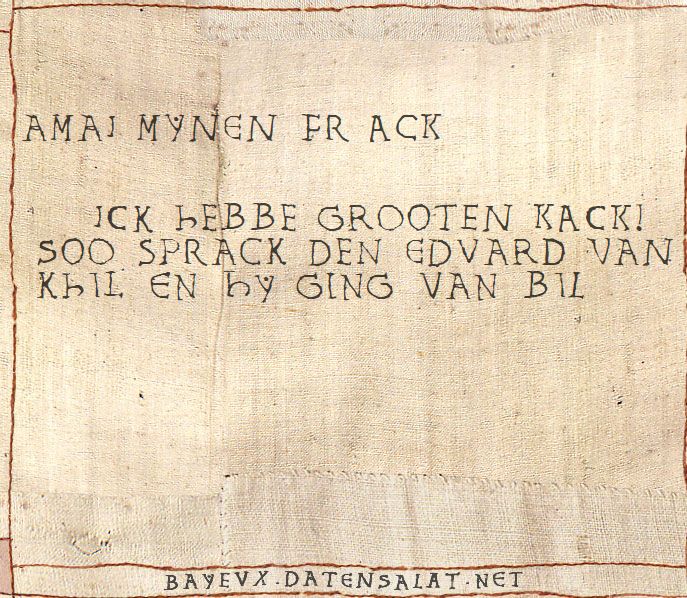 AMAI MYNEN FR ACK
ICK hEBBE GROOTEN KACK!
SOO SPRACK DEN EDVARD VAN
KhIL EN hY GING VAN BIL
BAYEVX.DATENSALAT.NET